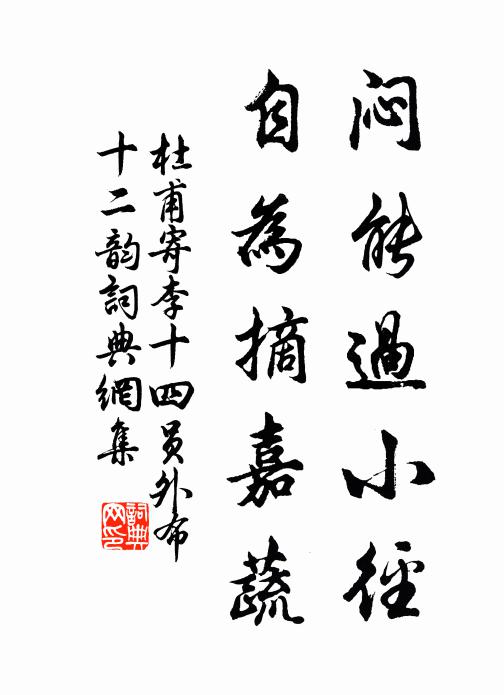 闷能過小径
自為摘嘉蔬
杜甫寄李十四员外布
十二韵詞典網集
詞典
网印